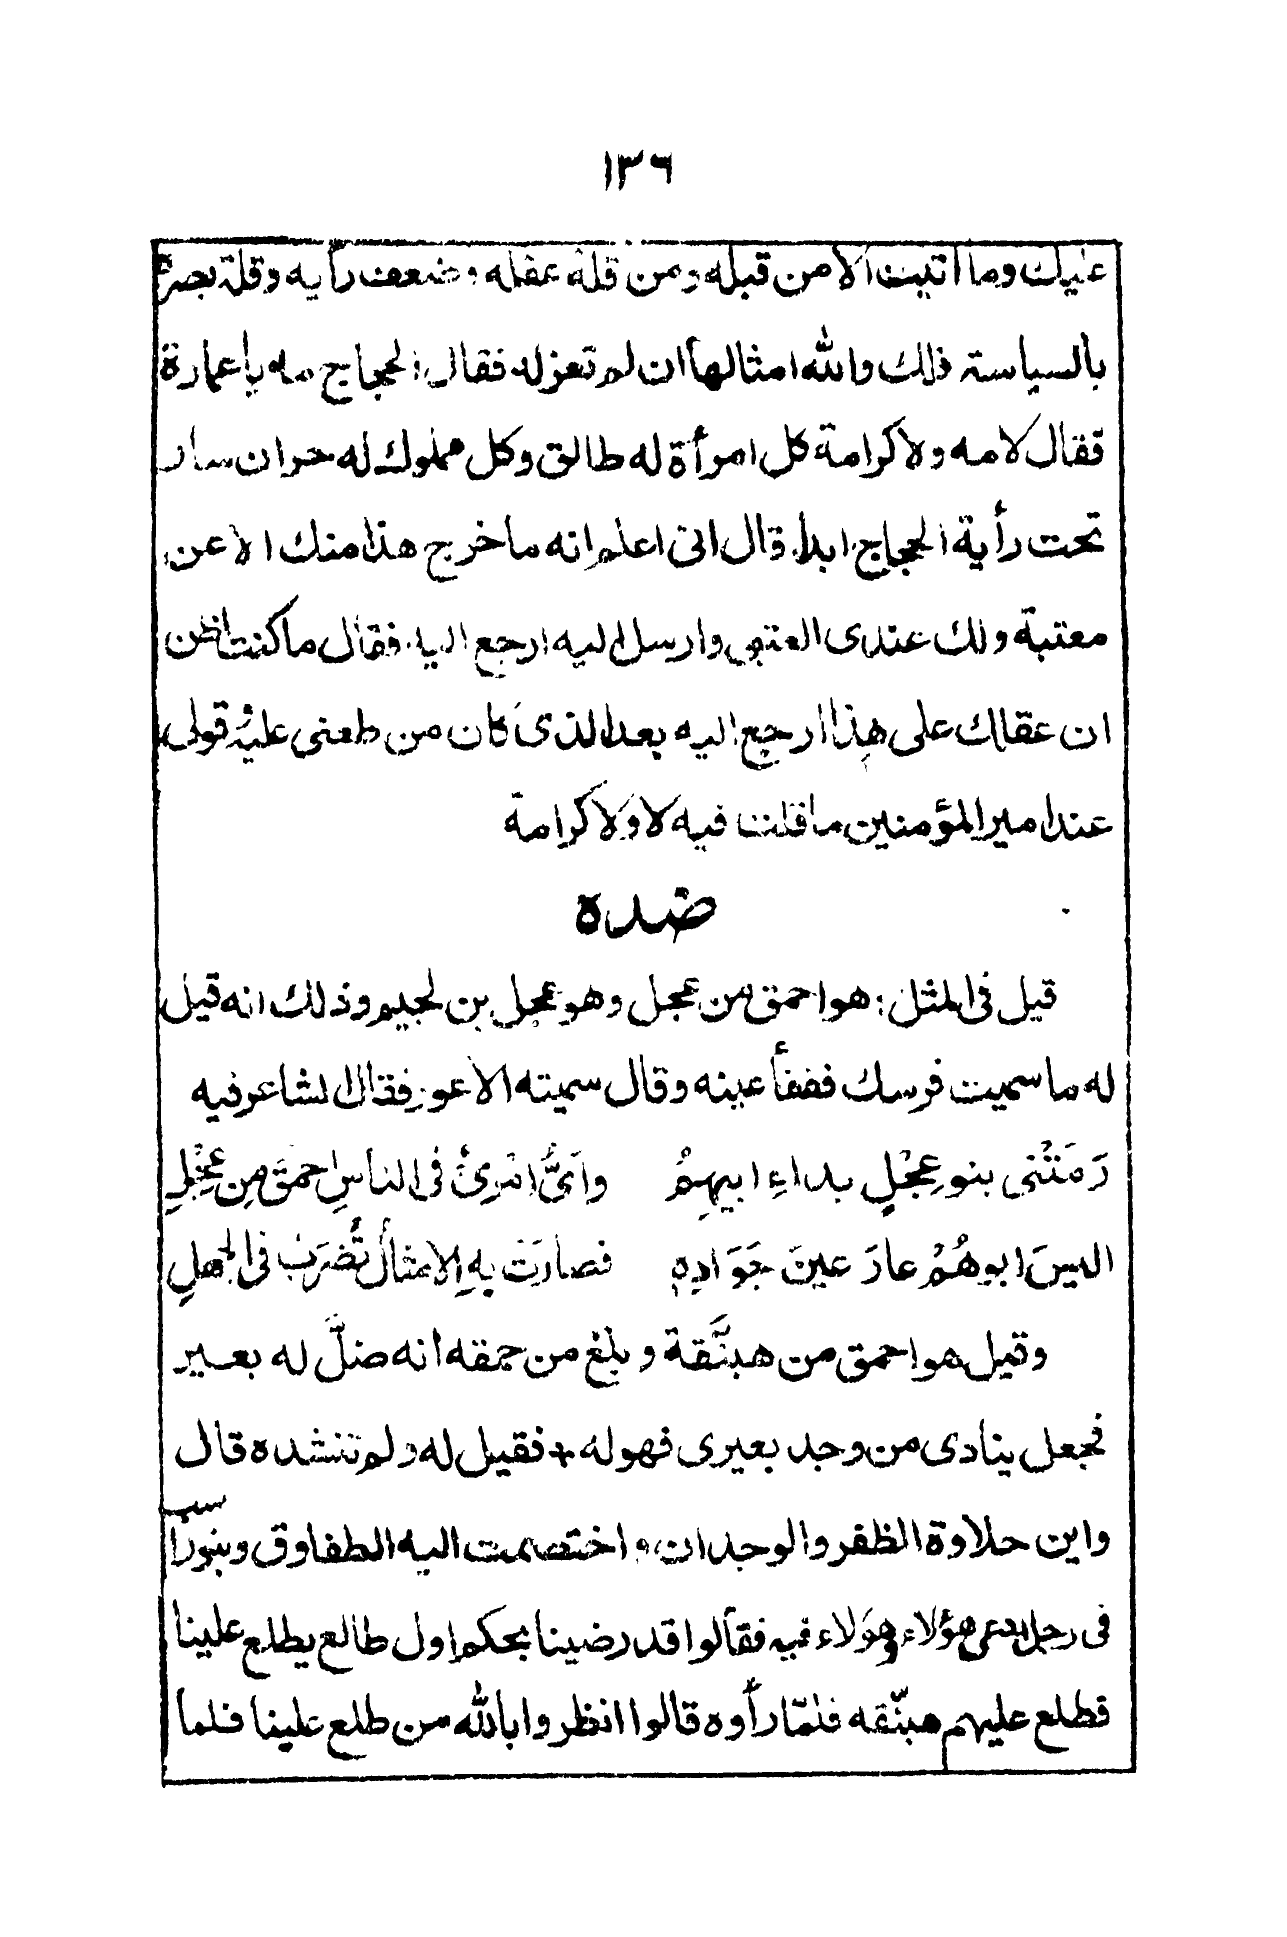 ١٣٦
عليك وما اتيت الا من قبله ومن قلة عقله وضعف رأيه وقلة بصره
بالسياسة ذلك والله امثالها ان لم تعزله فقال الحجاج مه يا عمارة
فقال لا مه ولا كرامة كل امرأة له طالق وكل مملوك له حر ان سار
تحت رأية الحجاج ابدا قال انى اعلم انه ما خرج هذا منك الا عن
معتبة ولك عندى العتبى وارسل اليه ارجع الينا فقال ما كنت اظن
ان عقلك على هذا ارجع اليه بعد الذى كان من طعنى عليه وقولى
عند امير المؤمنين ما قلت فيه لا ولا كرامة
ضده
قيل فى المثل : هو احمق من عجل وهو عجل بن لجيم وذلك انه قيل
له ما سميت فرسك ففقأ عينه وقال سميته الاعور فقال لشاعر فيه
رَمَتْنى بنو عِجْلٍ بداءِ ابيهِمُ وأىُّ امْرِئٍ فى الناسِ احمقَ مِن عِجْلِ
اليسَ ابوهُمْ عارَ عينَ جَوَادِهِ فصارَتْ بِهِ الامثالُ تُضْرَبُ فى الجهلِ
وقيل هو احمق من هبنَّقة وبلغ من حمقه انه ضلَّ له بعير
فجعل ينادى من وجد بعيرى فهو له + فقيل له ولم تنشده قال
واين حلاوة الظفر والوجدان واختصمت اليه الطفاوق وبنو راسب
فى رجل يدعى هؤلاء وهؤلاء فيه فقالوا قد رضينا بحكم اول طالع يطلع علينا
فطلع عليهم هبنّقه فلمّا رأوه قالوا انظروا بالله من طلع علينا فلما